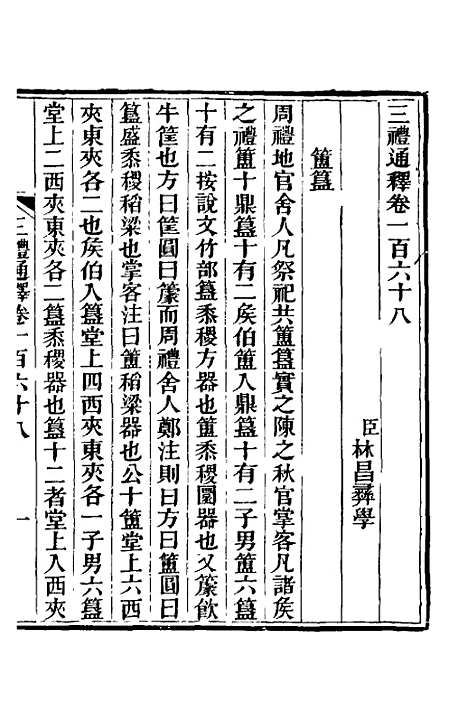 三禮通釋卷一百六十八
臣林昌彝學
簠簋
周禮地官舍人凡祭祀共簠簋實之陳之秋官掌客凡諸矦
之禮簠十鼎簋十有二矦伯簠八鼎簋十有二子男簠六簋
十有二按說文竹部簋黍稷方器也簠黍稷圜器也又䉛飲
牛筐也方曰筐圓曰䉛而周禮舍人鄭注則曰方曰簠圓曰
簋盛黍稷稻粱也掌客注曰簠稻粱器也公十簠堂上六西
夾東夾各二也矦伯八簋堂上四西夾東夾各一子男六簋
堂上二西夾東夾各二簋黍稷器也簋十二者堂上八西夾
三禮通釋卷一百六十八
一